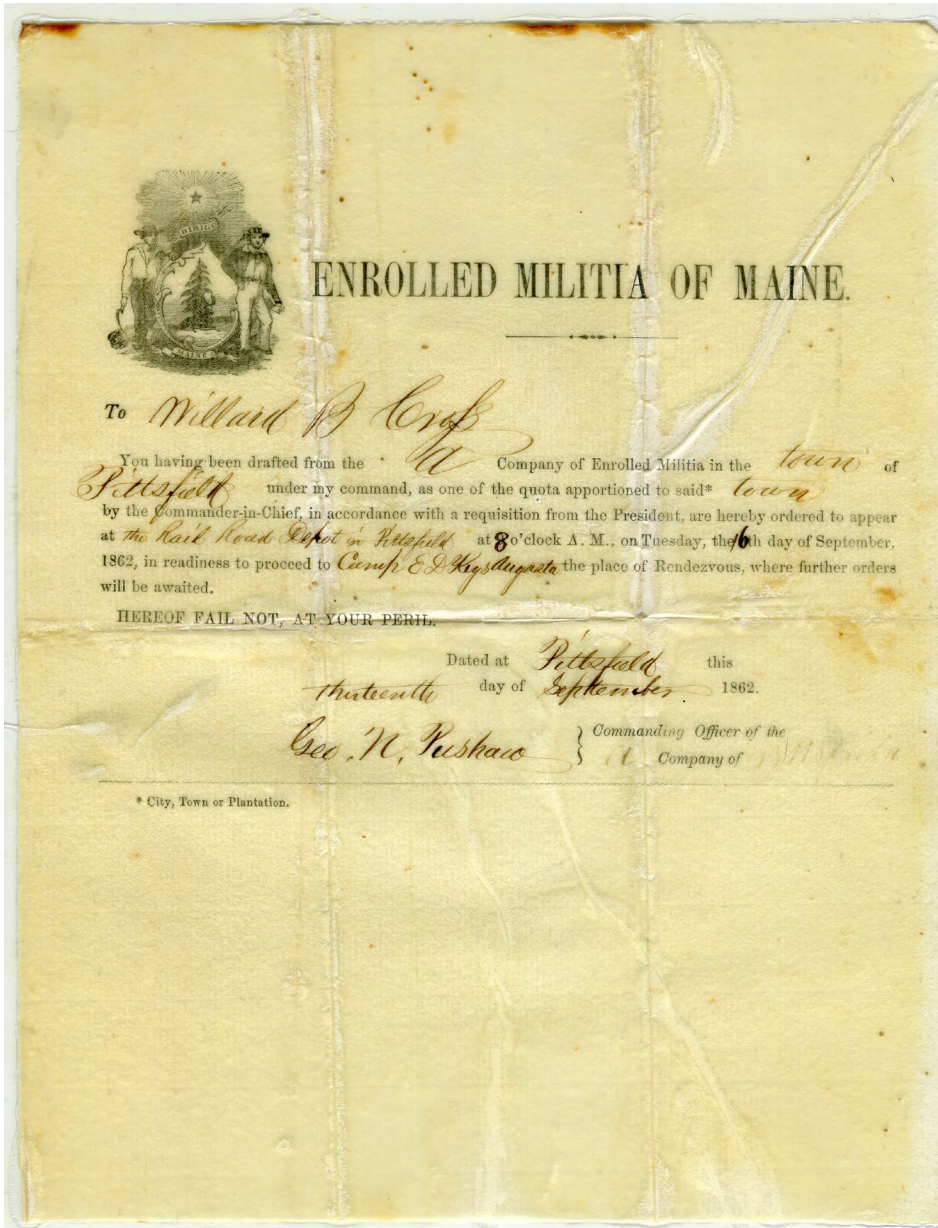 DIRIGO
MAINE
ENROLLED MILITIA OF MAINE.
To Willard B Cross
You having been drafted from the A Company of Enrolled Militia in the town of
Pittsfield under my command, as one of the quota apportioned to said* town
by the Commander-in-Chief, in accordance with a requisition from the President, are hereby ordered to appear
at the Rail Road Depot in Pittsfield at 8 o'clock A. M., on Tuesday, the 16th day of September,
1862, in readiness to proceed to Camp E D Keys Augusta the place of Rendezvous, where further orders
will be awaited.
HEREOF FAIL NOT, AT YOUR PERIL.
Dated at Pittsfield this
thirteenth day of September 1862.
Geo. N. Pushaw } Commanding Officer of the
A Company of Pittsfield
* City, Town or Plantation.